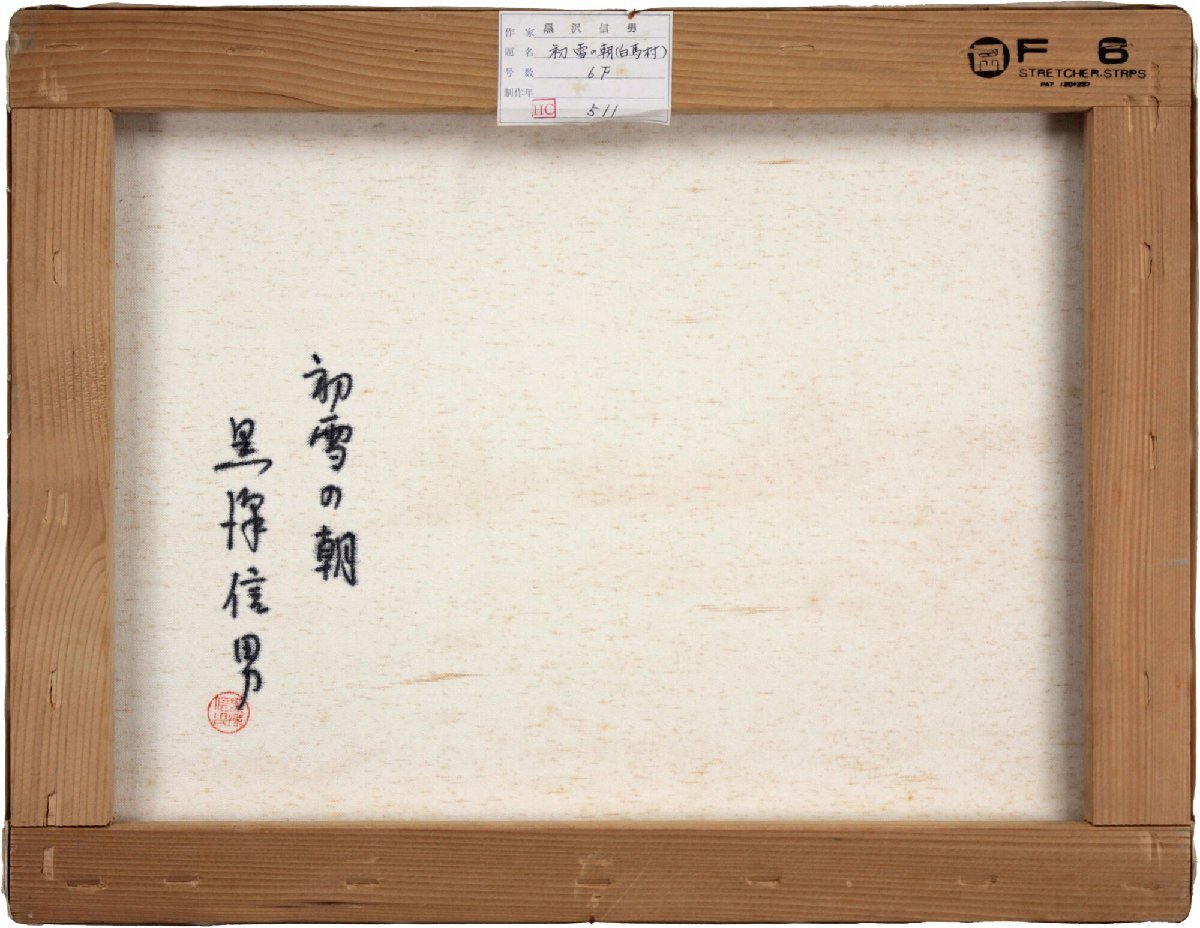 作家 黒沢信男
題名 初雪の朝(白馬村)
号数 6F
制作年
HC 511
岡 F 6
STRETCHER.STRPS
PAT 1201237
初雪の朝
黒澤信男